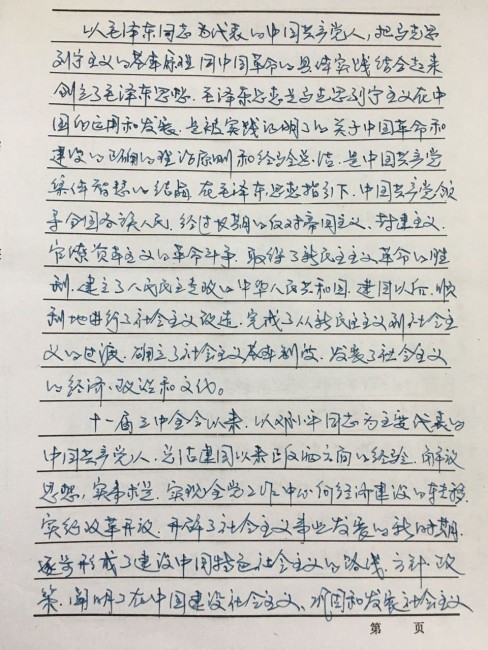 以毛泽东同志为代表的中国共产党人，把马克思
列宁主义的基本原理同中国革命的具体实践结合起来
创立了毛泽东思想．毛泽东思想是马克思列宁主义在中
国的运用和发展．是被实践证明了的关于中国革命和
建设的正确的理论原则和经验总结．是中国共产党
集体智慧的结晶．在毛泽东思想指引下．中国共产党领
导全国各族人民．经过长期的反对帝国主义、封建主义、
官僚资本主义的革命斗争．取得了新民主主义革命的胜
利．建立了人民民主专政的中华人民共和国．建国以后．顺
利地进行了社会主义改造．完成了从新民主主义到社会主
义的过渡．确立了社会主义基本制度．发展了社会主义
的经济．政治和文化。
十一届三中全会以来．以邓小平同志为主要代表的
中国共产党人．总结建国以来正反两方面的经验．解放
思想．实事求是．实现全党工作中心向经济建设的转移．
实行改革开放．开辟了社会主义事业发展的新时期．
逐步形成了建设中国特色社会主义的路线．方针．政
策．阐明了在中国建设社会主义、巩固和发展社会主义
第 页